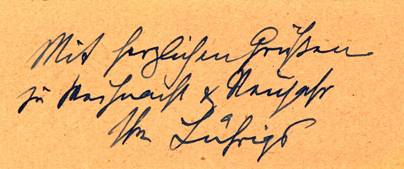 Mit herzlichen Grüßen
zu Weihnacht & Neujahr
Ihr